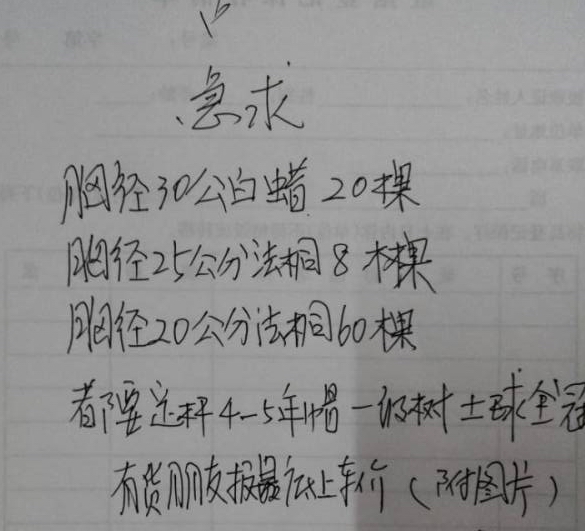 急求
胸径30公白蜡 20棵
胸径25公分法桐 8棵
胸径20公分法桐60棵
都要 4-5年帽一级树 土球全冠
有货朋友报最底上车价（附图片）